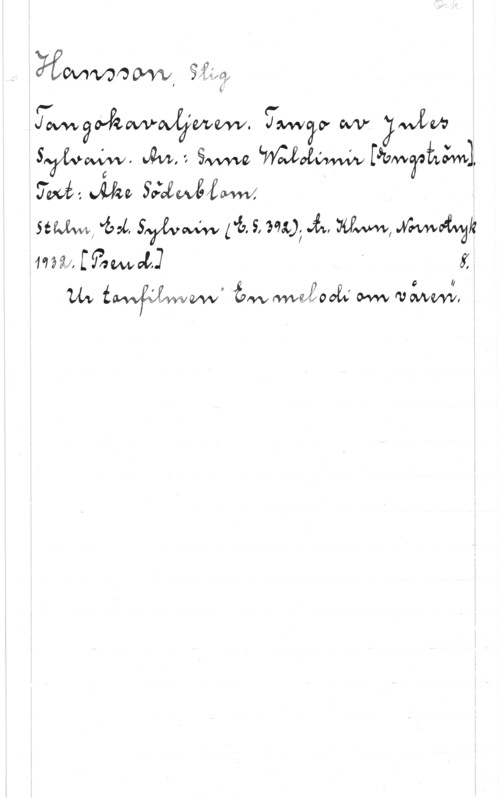 Ork
Hansson, Stig
Tangokavaljeren. Tango av Jules
Sylvain. Arr.: Sune Waldimir [Engström].
Text: Åke Söderblom.
Sthlm, Ed. Sylvain (E.S. 392); tr. Khvn, Nornotryk
1932. [Pseud.] 8.
Ur tonfilmen "En melodi om våren".